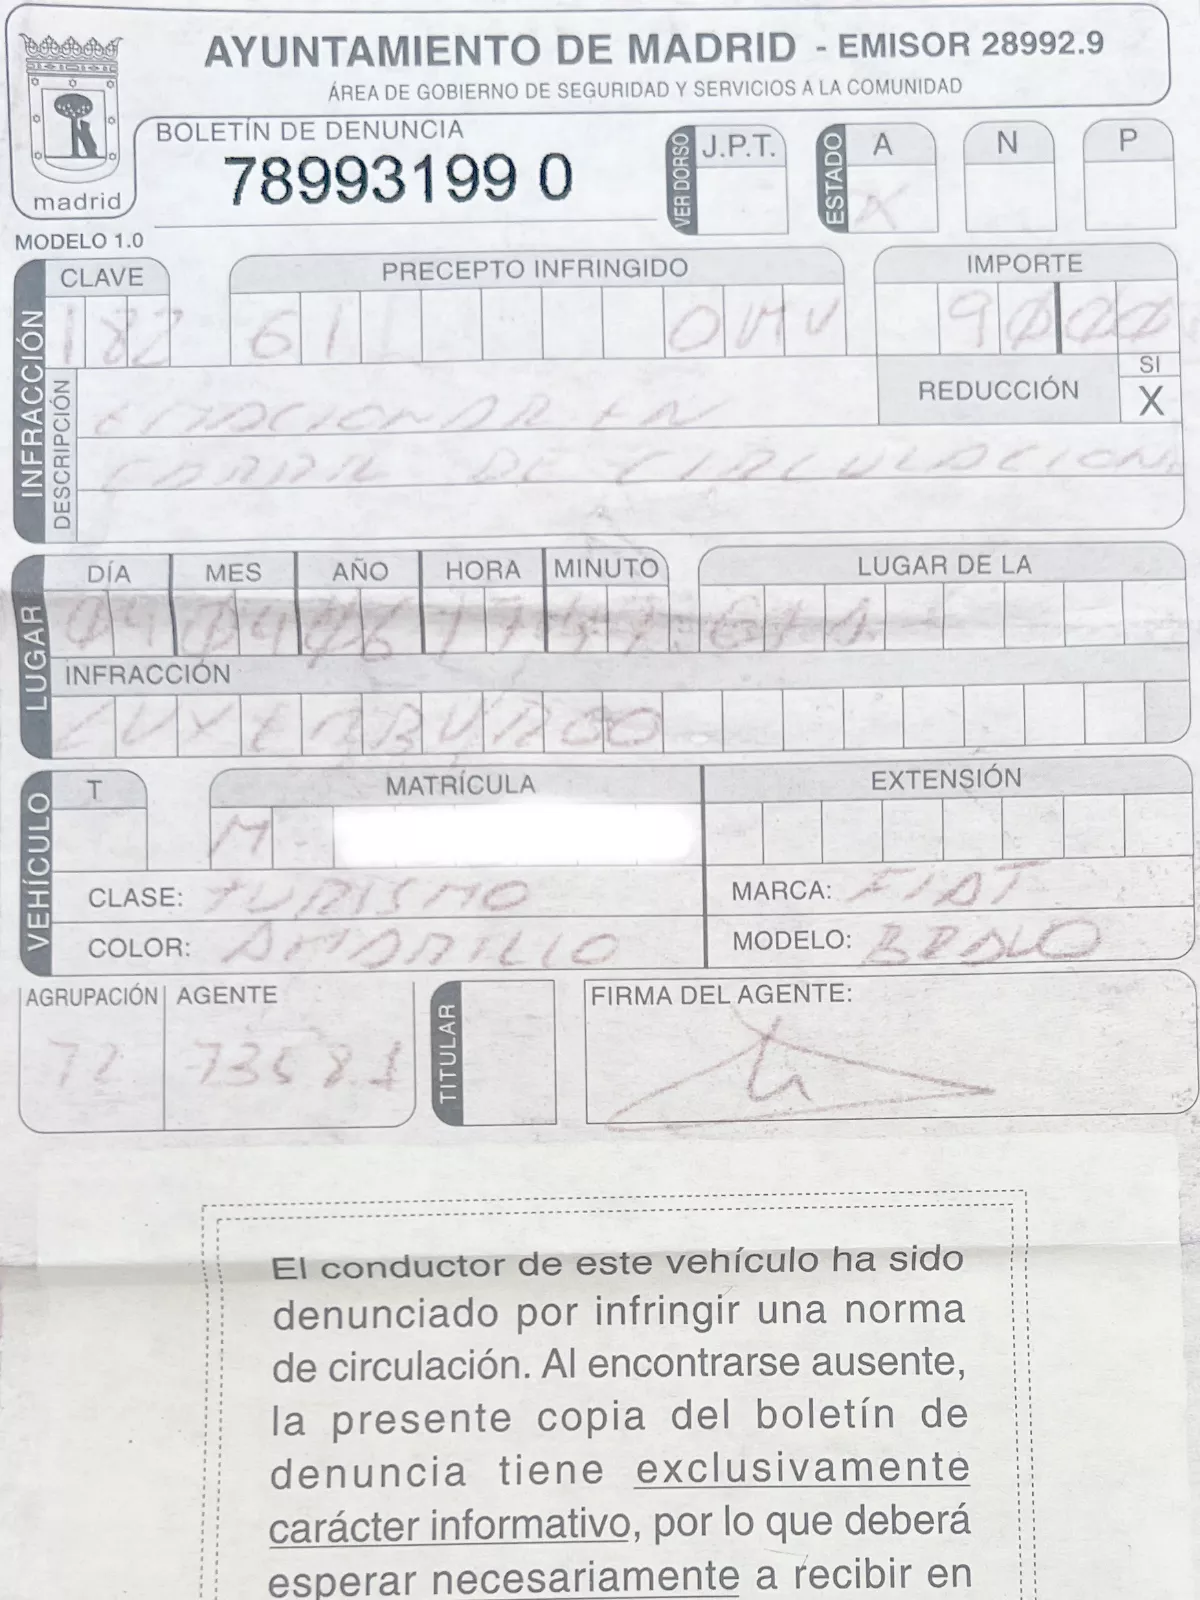 AYUNTAMIENTO DE MADRID - EMISOR 28992.9
ÁREA DE GOBIERNO DE SEGURIDAD Y SERVICIOS A LA COMUNIDAD
madrid
BOLETÍN DE DENUNCIA
78993199 0
VER DORSO J.P.T.
ESTADO A N P
X
MODELO 1.0
INFRACCIÓN
CLAVE PRECEPTO INFRINGIDO IMPORTE
182 61 OMV 9000
REDUCCIÓN SI X
DESCRIPCIÓN
EN
CARRIL DE CIRCULACION
LUGAR
DÍA MES AÑO HORA MINUTO LUGAR DE LA
04 17
INFRACCIÓN
LUXEMBURGO
VEHÍCULO
T MATRÍCULA EXTENSIÓN
M
CLASE: TURISMO MARCA: FIAT
COLOR: AMARILLO MODELO: BRAVO
AGRUPACIÓN AGENTE TITULAR FIRMA DEL AGENTE:
72 73581
El conductor de este vehículo ha sido
denunciado por infringir una norma
de circulación. Al encontrarse ausente,
la presente copia del boletín de
denuncia tiene exclusivamente
carácter informativo, por lo que deberá
esperar necesariamente a recibir en